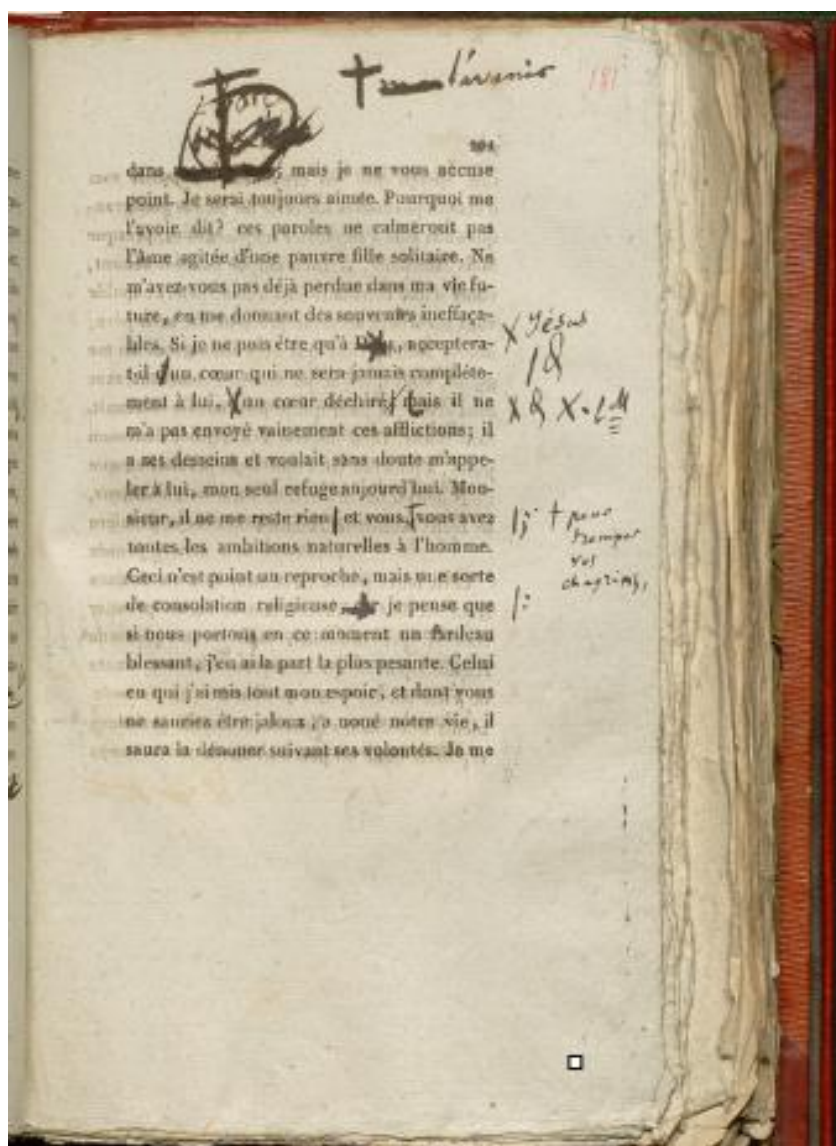 l'avenir
181
201
dans mais je ne vous accuse
point. Je serai toujours aimée. Pourquoi me
l'avoir dit? ces paroles ne calmeront pas
l'âme agitée d'une pauvre fille solitaire. Ne
m'avez-vous pas déjà perdue dans ma vie fu-
ture, en me donnant des souvenirs ineffaça-
bles. Si je ne puis être qu'à , acceptera-
Jésus
t-il d'un cœur qui ne sera jamais complète-
ment à lui, un cœur déchiré, mais il ne
m'a pas envoyé vainement ces afflictions; il
a ses desseins et voulait sans doute m'appe-
ler à lui, mon seul refuge aujourd'hui. Mon-
sieur, il ne me reste rien et vous, vous avez
pour
tromper
vos
chagrins,
toutes les ambitions naturelles à l'homme.
Ceci n'est point un reproche, mais une sorte
de consolation religieuse je pense que
si nous portons en ce moment un fardeau
blessant, j'en ai la part la plus pesante. Celui
en qui j'ai mis tout mon espoir, et dont vous
ne sauriez être jaloux, a noué notre vie, il
saura la dénouer suivant ses volontés. Je me